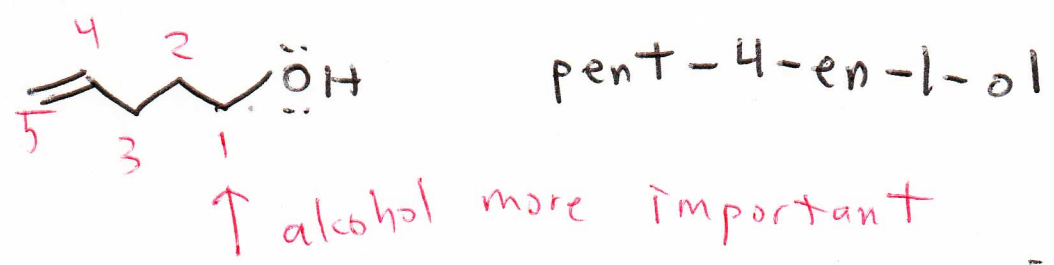 4 2 ÖH pent-4-en-1-ol
5 3 1
↑ alcohol more important